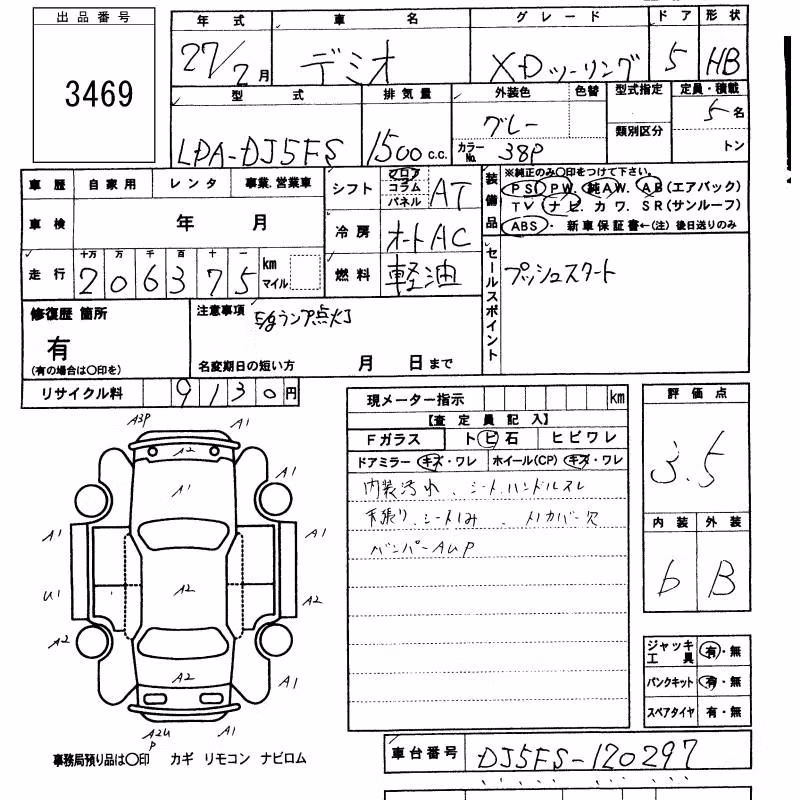 出品番号
3469
年式 車名 グレード ドア 形状
27/2月 デミオ XDツーリング 5 HB
型式 排気量 外装色 色替 型式指定 定員・積載
LDA-DJ5FS 1500c.c. グレー 5名
カラーNo. 38P 類別区分 トン
車歴 自家用 レンタ 事業.営業車
車検 年 月
走行 十万 万 千 百 十 一
206375 km
マイル
シフト フロア コラム パネル AT
冷房 オートAC
燃料 軽油
装備品 ※純正のみ○印をつけて下さい。
PS PW. 純AW. AB(エアバック)
TV ナビ. カワ. SR(サンルーフ)
ABS・ 新車保証書←(注)後日送りのみ
セールスポイント
プッシュスタート
修復歴 箇所
有
(有の場合は○印を)
注意事項
E/gランプ点灯
名変期日の短い方 月 日まで
リサイクル料 9130円
現メーター指示 km
【査定員記入】
Fガラス トビ石 ヒビワレ
ドアミラー キズ・ワレ ホイール(CP) キズ・ワレ
内装汚れ、シート.ハンドルスレ
天張り、シートしみ
カバー欠
バンパーAUP
評価点
3.5
内装 外装
6 B
ジャッキ
工具 有・無
パンクキット 有・無
スペアタイヤ 有・無
車台番号 DJ5FS-120297
A3P A1
A2
A1
A1 A1
U1 A2 A2
A2
A2 A1
A2U
P A1
事務局預り品は○印 カギ リモコン ナビロム